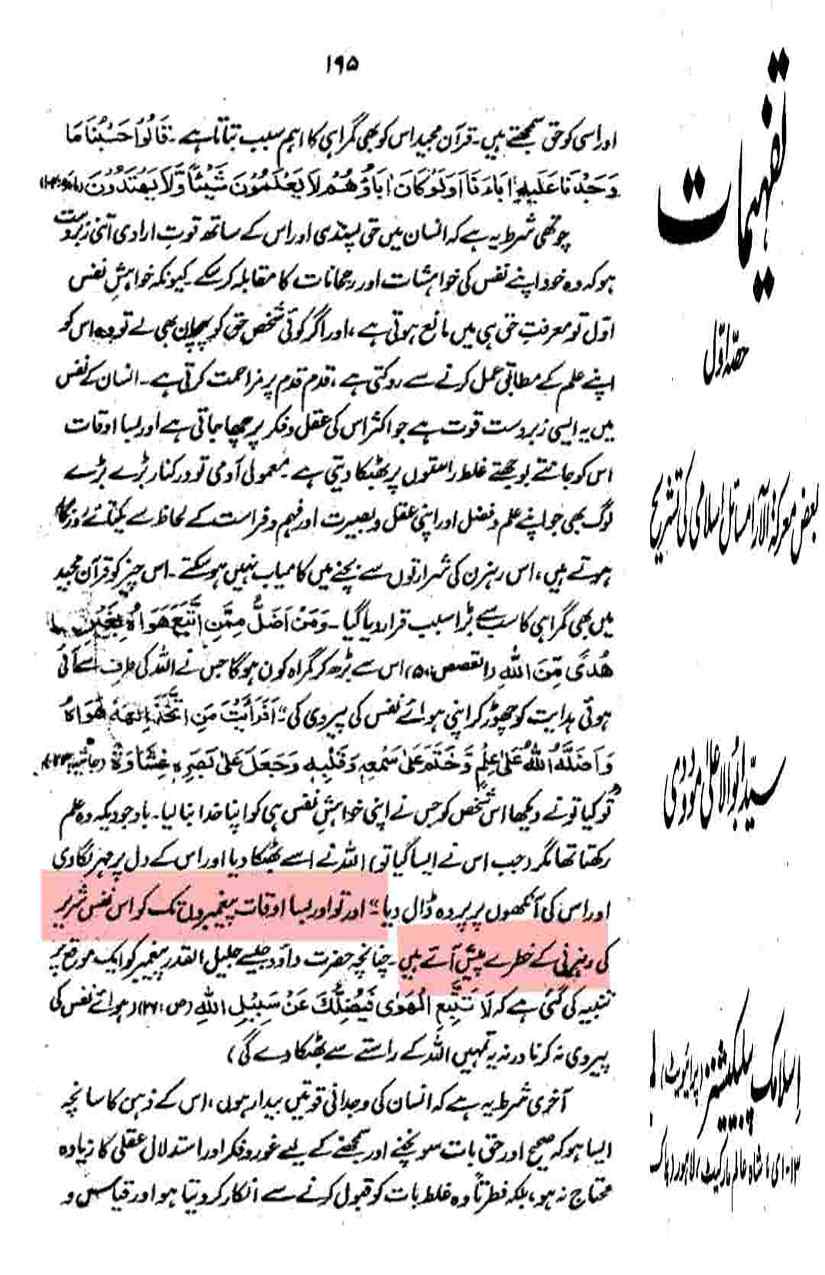 ۱۹۵
اور اسی کو حق سمجھتے ہیں۔ قرآن مجید اس کو بھی گمراہی کا اہم سبب بتاتا ہے۔ قَالُوْا حَسْبُنَا مَا
وَجَدْنَا عَلَيْهِ اٰبَاءَنَا اَوَلَوْ كَانَ اٰبَاؤُهُمْ لَا يَعْلَمُوْنَ شَيْئًا وَّلَا يَهْتَدُوْنَ
چوتھی شرط یہ ہے کہ انسان میں حق پسندی اور اس کے ساتھ قوتِ ارادی اتنی زبردست
ہو کہ وہ خود اپنے نفس کی خواہشات اور رجحانات کا مقابلہ کر سکے۔ کیونکہ خواہشِ نفس
اوّل تو معرفتِ حق ہی میں مانع ہوتی ہے، اور اگر کوئی شخص حق کو پہچان بھی لے تو وہ اس کو
اپنے علم کے مطابق عمل کرنے سے روکتی ہے، قدم قدم پر مزاحمت کرتی ہے۔ انسان کے نفس
میں یہ ایسی زبردست قوت ہے جو اکثر اس کی عقل و فکر پر چھا جاتی ہے اور بسا اوقات
اس کو جانتے بوجھتے غلط راستوں پر بھٹکا دیتی ہے۔ معمولی آدمی تو درکنار بڑے بڑے
لوگ بھی جو اپنے علم و فضل اور اپنی عقل و بصیرت اور فہم و فراست کے لحاظ سے یکتائے روزگار
ہوتے ہیں، اس رہزن کی شرارتوں سے بچنے میں کامیاب نہیں ہو سکتے۔ اس چیز کو قرآن مجید
میں بھی گمراہی کا سب سے بڑا سبب قرار دیا گیا۔ وَمَنْ اَضَلُّ مِمَّنِ اتَّبَعَ هَوَاهُ بِغَيْرِ
هُدًى مِّنَ اللهِ (القصص: ۵۰) اس سے بڑھ کر گمراہ کون ہوگا جس نے اللہ کی طرف سے آئی
ہوئی ہدایت کو چھوڑ کر اپنی ہوائے نفس کی پیروی کی" اَفَرَاَيْتَ مَنِ اتَّخَذَ اِلٰهَهٗ هَوَاهُ
وَاَضَلَّهُ اللهُ عَلٰى عِلْمٍ وَّخَتَمَ عَلٰى سَمْعِهٖ وَقَلْبِهٖ وَجَعَلَ عَلٰى بَصَرِهٖ غِشَاوَةً (جاثیہ: ۲۳)
تو کیا تونے دیکھا اس شخص کو جس نے اپنی خواہشِ نفس ہی کو اپنا خدا بنا لیا۔ باوجودیکہ وہ علم
رکھتا تھا مگر (جب اس نے ایسا کیا تو) اللہ نے اسے بھٹکا دیا اور اس کے دل پر مہر لگا دی
اور اس کی آنکھوں پر پردہ ڈال دیا"۔ اور تو اور بسا اوقات پیغمبروں تک کو اس نفس شریر
کی رہزنی کے خطرے پیش آتے ہیں۔ چنانچہ حضرت داؤد جیسے جلیل القدر پیغمبر کو ایک موقع پر
تنبیہ کی گئی ہے کہ لَا تَتَّبِعِ الْهَوٰى فَيُضِلَّكَ عَنْ سَبِيْلِ اللهِ (ص: ۲۶) (ہوائے نفس کی
پیروی نہ کرنا ورنہ یہ تمہیں اللہ کے راستے سے بھٹکا دے گی)
آخری شرط یہ ہے کہ انسان کی وجدانی قوتیں بیدار ہوں، اس کے ذہن کا سانچہ
ایسا ہو کہ صحیح اور حق بات سوچنے اور سمجھنے کے لیے غور و فکر اور استدلال عقلی کا زیادہ
محتاج نہ ہو، بلکہ فطرتاً وہ غلط بات کو قبول کرنے سے انکار کر دیتا ہو اور قیاس و
تفہیمات
حصہ اوّل
بعض معرکۃ الآرا مسائل اسلامی کی تشریح
سیّد ابوالاعلیٰ مودودی
اسلامک پبلیکیشنز (پرائیویٹ)
۱۳-ای، شاہ عالم مارکیٹ، لاہور